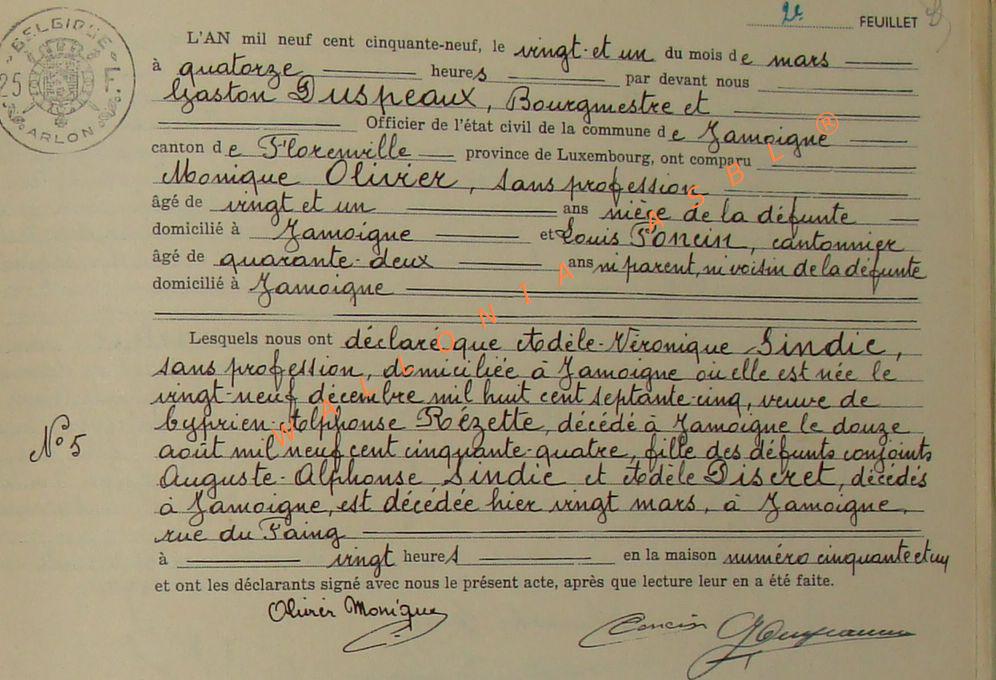 2e FEUILLET
BELGIQUE
25
ARLON
L'AN mil neuf cent cinquante-neuf, le vingt-et un du mois de mars
à quatorze heures par devant nous
Gaston Duspeaux, Bourgmestre et
Officier de l'état civil de la commune de Jamoigne
canton de Florenville province de Luxembourg, ont comparu
Monique Olivier, sans profession
âgé de vingt et un ans nièce de la défunte
domicilié à Jamoigne et Louis Poncin, cantonnier
âgé de quarante-deux ans ni parent, ni voisin de la défunte
domicilié à Jamoigne
WALLONIA ASBL ®
Lesquels nous ont déclaré que Adèle-Véronique Sindic,
sans profession, domiciliée à Jamoigne où elle est née le
vingt-neuf décembre mil huit cent septante-cinq, veuve de
Cyprien-Alphonse Rézette, décédé à Jamoigne le douze
août mil neuf cent cinquante-quatre, fille des défunts conjoints
Auguste-Alphonse Sindic et Adèle Discret, décédés
à Jamoigne, est décédée hier vingt mars, à Jamoigne,
rue du Faing
N° 5
à vingt heures en la maison numéro cinquante et un
et ont les déclarants signé avec nous le présent acte, après que lecture leur en a été faite.
Olivier Monique
Poncin